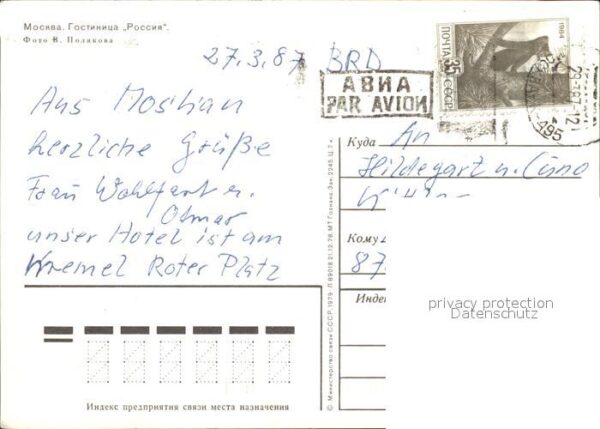 Москва. Гостиница „Россия".
Фото В. Полякова
27.3.87 BRD
АВИА
PAR AVION
ПОЧТА СССР 35
1984
Aus Moskau
herzliche Grüße
Frau Wohlfart u.
Otmar
unser Hotel ist am
Kremel Roter Platz
Куда An
Hildegart u. Cuno
Кому
87
Индек
privacy protection
Datenschutz
Индекс предприятия связи места назначения
© Министерство связи СССР, 1979. Л 89018 21.12.78. МТ Гознака. Зак. 2245. Ц. 7 к.